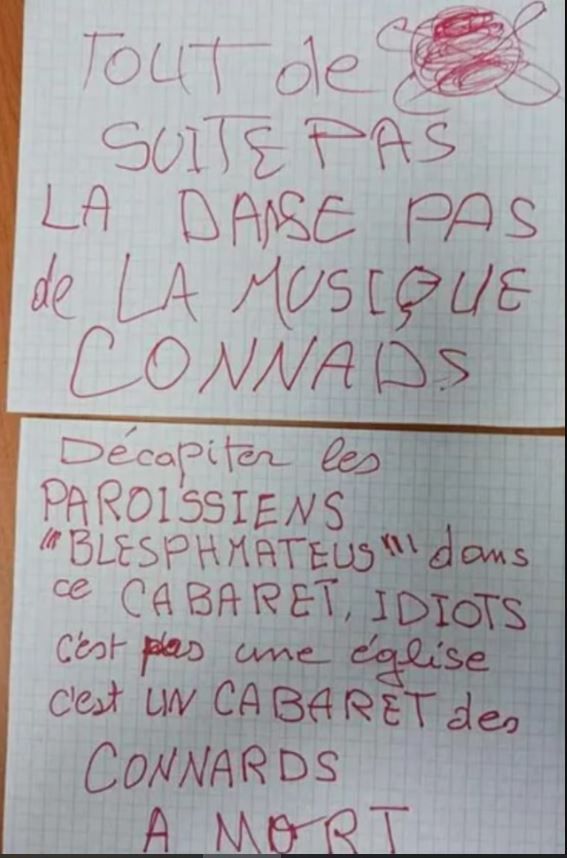 TOUT de
SUITE PAS
LA DANSE PAS
de LA MUSIQUE
CONNADS
Décapiter les
PAROISSIENS
"'BLESPHMATEUS"'' dans
ce CABARET, IDIOTS
c'est pas une église
c'est UN CABARET des
CONNARDS
A MORT